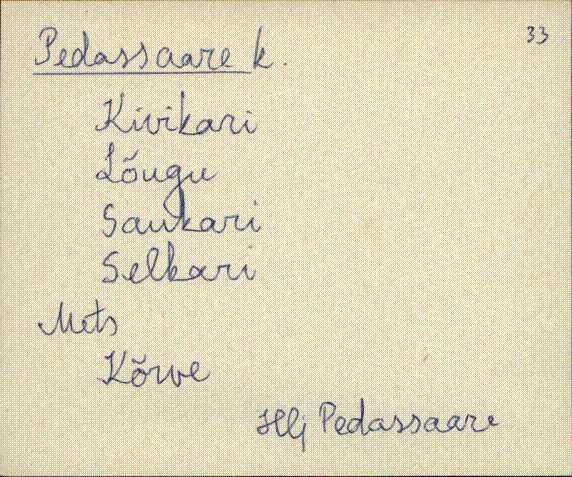 33
Pedassaare k.
Kivikari
Lõugu
Saukari
Selkari
Mets
Kõrve
Hlj Pedassaare